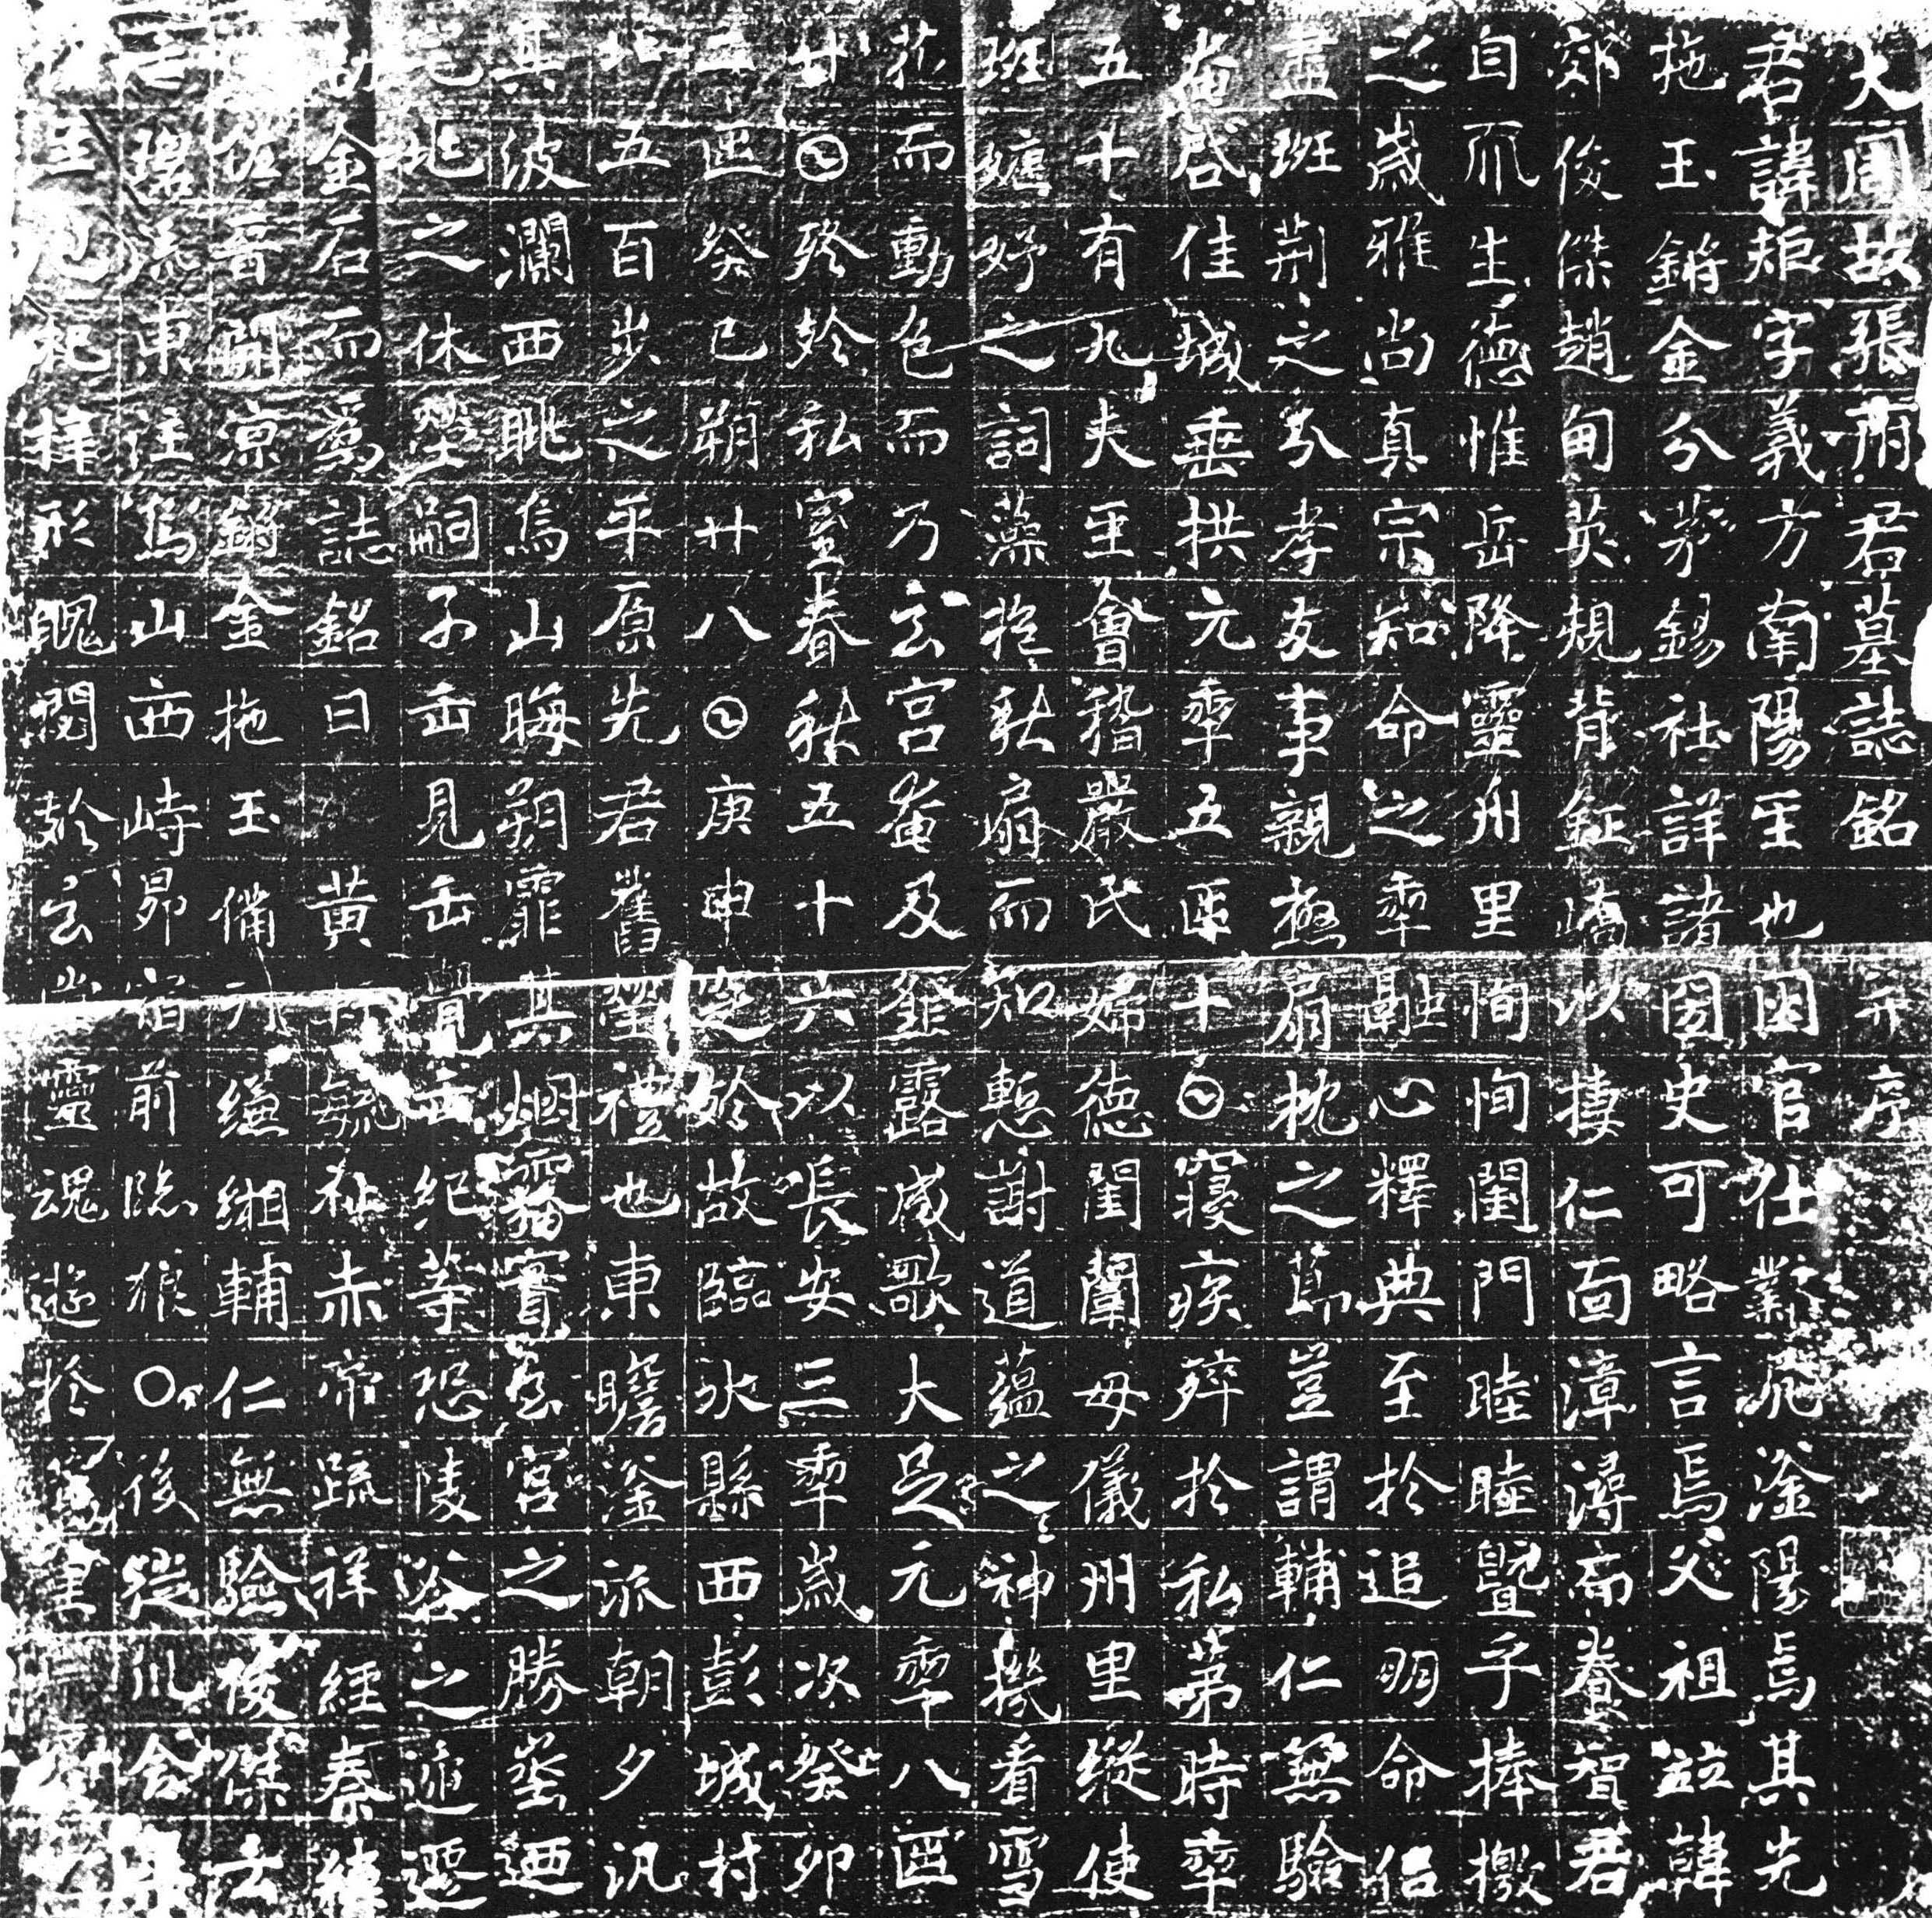 大周故張府君墓誌銘并序
君諱矩字義方南陽𡈼也因官仕業宛滏陽焉其先
拖玉鏘金分茅錫社詳諸圀史可略言焉父祖竝韓
郊俊傑趙甸英規背鉦嶠以捿仁面漳潯而養智君
自爪生德惟岳降靈州里恂恂閨門睦睦曁乎捧檄
之歲雅尚真宗知命之𠡦融心釋典至於追朋命侶
盡班荆之分孝友事親極扇枕之節豈謂輔仁無驗
奄啓佳城垂拱元𠡦五𠥱十𡆠寢疾殍於私第時𠡦
五十有九夫𡈼會稽嚴氏婦德閨闈母儀州里縱使
班嫬妤之詞藻抱秋扇而知慙謝道蘊之神機看雪
花而動色而乃玄宮奄及薤露咸歌大足元𠡦八𠥱
廿𡆠終於私室春秋五十六以長安三𠡦歲次癸卯
二𠥱癸巳朔廿八𡆠庚申窆於故臨水縣西彭城村
北五百步之平原先君舊塋禮也東瞻滏派朝夕汎
其波瀾西眺烏山晦朔霏其烟霧實玄宮之勝塋迺
宅兆之休塋嗣子𠙺見𠙺覺𠙺紀等恐陵谷之遞遷
金石而爲誌銘曰黃神毓祉赤帝疏祥經秦纏
佐晉開涼鏘金拖玉備乃縑緗輔仁無驗俊傑云
亡流東注烏山西峙昴宿前臨狼〇後
杞梓形魄閟於玄堂靈魂遊於里